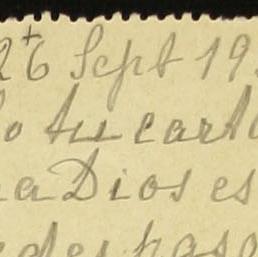 26 Sept 19
tu carta
a Dios es